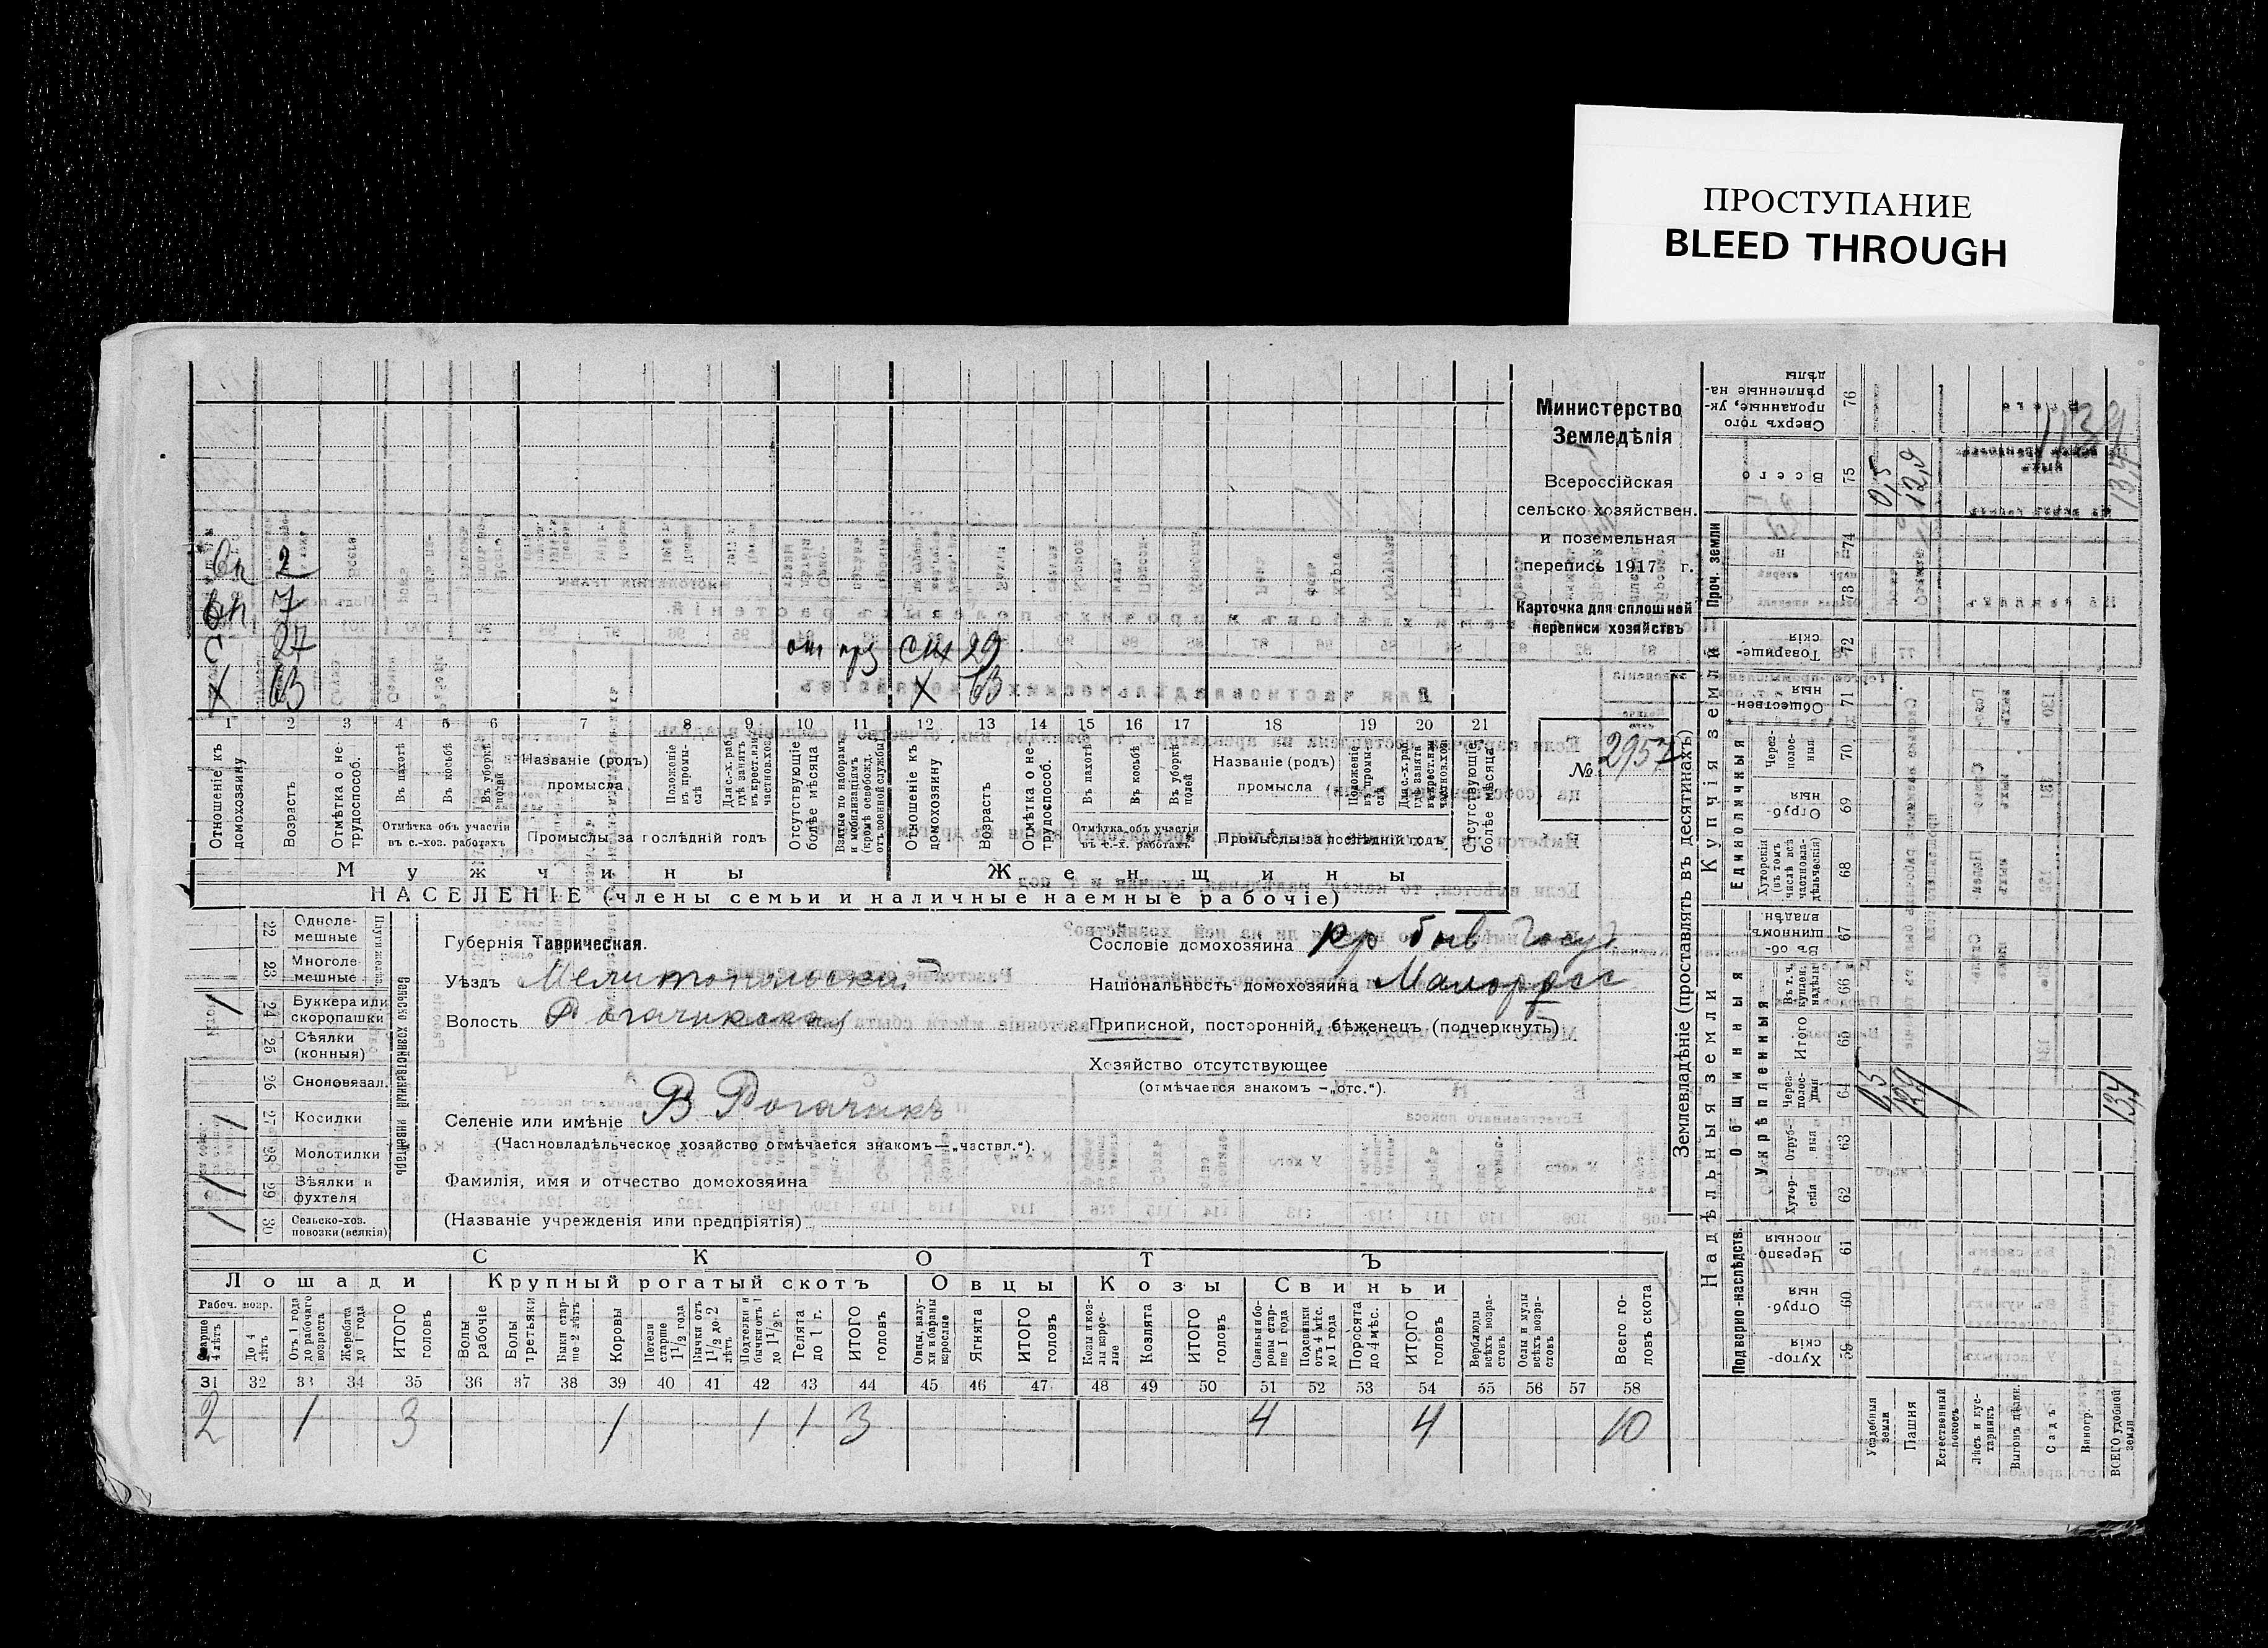 ПРОСТУПАНИЕ
BLEED THROUGH
Министерство
Земледѣлія
Всероссійская
сельско-хозяйствен.
и поземельная
перепись 1917 г.
Карточка для сплошной
переписи хозяйствъ
№ 2957
вн 2
вн 7
с 27 от прз сн 29
х 63 х 63
1 2 3 4 5 6 7 8 9 10 11 12 13 14 15 16 17 18 19 20 21
Отношеніе къ домохозяину
Возрастъ
Отмѣтка о нетрудоспособ.
Въ пахотѣ
Въ косьбѣ
Въ уборкѣ полей
Отмѣтка объ участіи въ с.-хоз. работахъ
Названіе (родъ) промысла
Положеніе въ промыслѣ
Для с.-х. раб. гдѣ занятъ въ крест. или частнов. хоз.
Промыслы за послѣдній годъ
Отсутствующіе болѣе мѣсяца
Взятые по наборамъ и мобилизаціямъ (кромѣ освобожд. отъ военной службы)
Отношеніе къ домохозяину
Возрастъ
Отмѣтка о нетрудоспособ.
Въ пахотѣ
Въ косьбѣ
Въ уборкѣ полей
Отмѣтка объ участіи въ с.-х. работахъ
Названіе (родъ) промысла
Положеніе въ промыслѣ
Для с.-х. раб. гдѣ занята въ крест. или частнов. хоз.
Промыслы за послѣдній годъ
Отсутствующіе болѣе мѣсяца
Мужчины Женщины
НАСЕЛЕНІЕ (члены семьи и наличные наемные рабочіе)
Сельско хозяйственный инвентарь
22 Однолемешные
23 Многолемешные
24 Буккера или скоропашки 1
25 Сѣялки (конныя)
26 Сноповязал.
27 Косилки 1
28 Молотилки
29 Вѣялки и фухтеля 1
30 Сельско-хоз. повозки (всякія) 1
Губернія Таврическая.
Уѣздъ Мелитопольскій
Волость Рогачикская
Селеніе или имѣніе В Рогачикъ
(Частновладѣльческое хозяйство отмѣчается знакомъ — „частвл.“).
Фамилія, имя и отчество домохозяина
(Названіе учрежденія или предпріятія)
Сословіе домохозяина кр быв Госуд
Національность домохозяина Малоросс
Приписной, посторонній, бѣженецъ (подчеркнуть)
Хозяйство отсутствующее
(отмѣчается знакомъ — „отс.“).
СКОТЪ
Лошади Крупный рогатый скотъ Овцы Козы Свиньи
Рабоч. возр.
Старше 4 лѣтъ
До 4 лѣтъ
Отъ 1 года до рабочаго возраста
Жеребята до 1 года
ИТОГО головъ
Волы рабочіе
Волы третьяки
Быки старше 2 лѣтъ
Коровы
Нетели старше 1 1/2 года
Бычки отъ 1 1/2 до 2 лѣтъ
Подтелки и бычки отъ 1 до 1 1/2 г.
Телята до 1 г.
ИТОГО головъ
Овцы, валухи и бараны взрослые
Ягнята
ИТОГО головъ
Козы и козлы взрослые
Козлята
ИТОГО головъ
Свиньи и боровы старше 1 года
Подсвинки отъ 4 мѣс. до 1 года
Поросята до 4 мѣс.
ИТОГО головъ
Верблюды всѣхъ возрастовъ
Ослы и мулы всѣхъ возрастовъ
Всего головъ скота
31 32 33 34 35 36 37 38 39 40 41 42 43 44 45 46 47 48 49 50 51 52 53 54 55 56 57 58
2 1 3 1 1 1 3 4 4 10
Землевладѣніе (проставлять въ десятинахъ)
Надѣльныя земли Купчія земли Проч. земли
Подворно-наслѣдств. Общинныя Единоличныя
Укрѣпленныя
Хуторскія 59
Отрубныя 60
Черезполосныя 61
Хуторскія 62
Отрубныя 63
Черезполосныя 64
Итого 65
Въ т. ч. куплен. надѣлы 66
Въ общинномъ владѣн. 67
Хуторскія (въ томъ числѣ всѣ частновладѣльческія) 68
Отрубныя 69
Черезполосныя 70
Общественныя 71
Товарищескія 72
73
74
Всего 75
Сверхъ того проданные, укрѣпленные надѣлы 76
Усадебныя земли
Пашня
Естественный покосъ
Лѣсъ и кустарникъ
Выгонъ
Садъ
Виногр.
ВСЕГО удобной земли
0,5 12,9 13,4
0,5 12,9 13,4